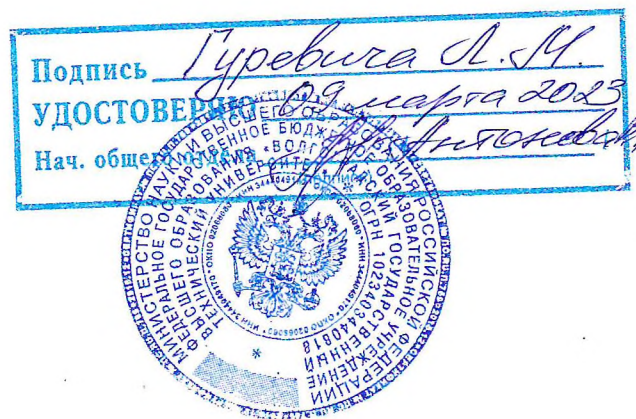 Подпись Гуревича Л. М.
УДОСТОВЕРЯЮ 09 марта 2023
Нач. общего отдела
(подпись)
МИНИСТЕРСТВО НАУКИ И ВЫСШЕГО ОБРАЗОВАНИЯ РОССИЙСКОЙ ФЕДЕРАЦИИ
ФЕДЕРАЛЬНОЕ ГОСУДАРСТВЕННОЕ БЮДЖЕТНОЕ ОБРАЗОВАТЕЛЬНОЕ УЧРЕЖДЕНИЕ
ВЫСШЕГО ОБРАЗОВАНИЯ «ВОЛГОГРАДСКИЙ ГОСУДАРСТВЕННЫЙ
ТЕХНИЧЕСКИЙ УНИВЕРСИТЕТ» * ОГРН 1023403440818
* ИНН 3444049170 * ОКПО 02068060 * ИНН 3444049170 * ОКПО 02068060